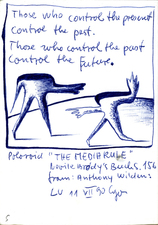 Those who control the present
Control the past.
Those who control the past
Control the future.
Poloroid "THE MEDIA RULE"
Buchs, 156
from: Anthony Wilden
LU 11 VII 90
5